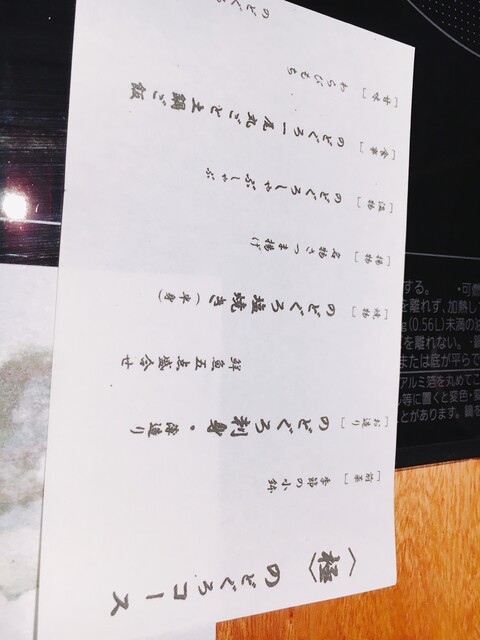 〈極〉のどぐろコース
［前菜］ 季節の小鉢
［お造り］ のどぐろ刺身・薄造り
鮮魚五点盛合せ
［焼物］ のどぐろ塩焼き（半身）
［揚物］ 名物さつま揚げ
［温物］ のどぐろしゃぶしゃぶ
［食事］ のどぐろ一尾丸ごと土鍋ご飯
［甘味］ わらびもち
のどぐろ
する。 ・可
を離れず、加熱し
(0.56L)未満の
を離れない。
または底が平らで
アルミ箔を丸めてこ
等に置くと変色・変
とがあります。鍋を